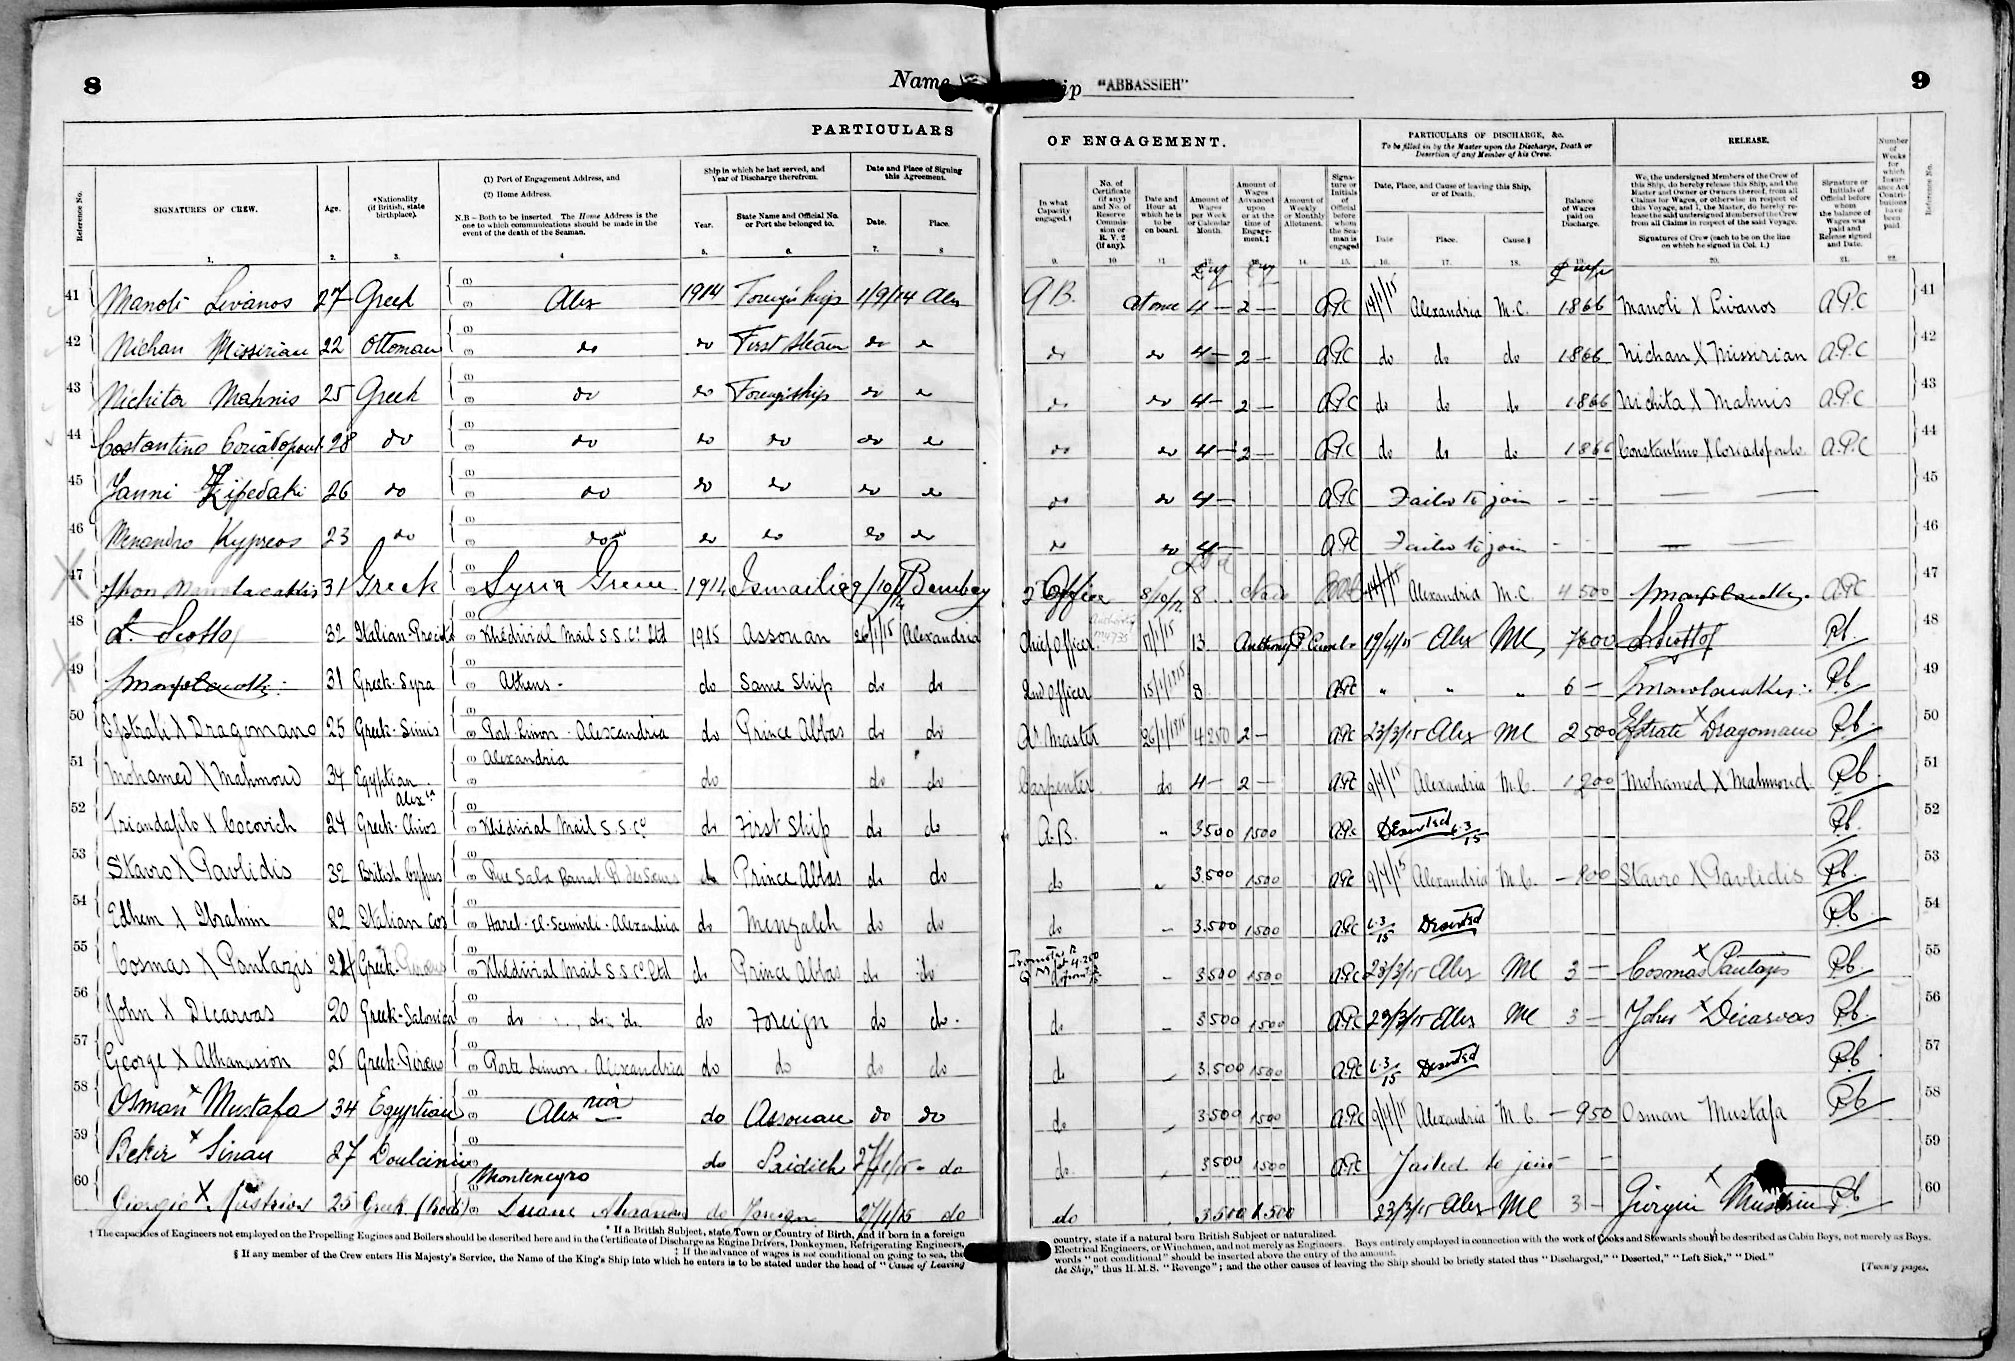 8
Name
Ship "ABBASSIEH"
9
PARTICULARS
OF ENGAGEMENT.
PARTICULARS OF DISCHARGE, &c.
To be filled in by the Master upon the Discharge, Death or Desertion of any Member of his Crew.
RELEASE.
Reference No.
SIGNATURES OF CREW.
Age.
*Nationality (if British, state birthplace).
(1) Port of Engagement Address, and
(2) Home Address.
N.B – Both to be inserted. The Home Address is the one to which communications should be made in the event of the death of the Seaman.
Ship in which he last served, and Year of Discharge therefrom.
Year.
State Name and Official No. or Port she belonged to.
Date and Place of Signing this Agreement.
Date.
Place.
In what Capacity engaged.†
No. of Certificate (if any) and No. of Reserve Commission or R. V. 2 (if any).
Date and Hour at which he is to be on board.
Amount of Wages per Week or Calendar Month.
Amount of Wages Advanced upon or at the time of Engagement.‡
Amount of Weekly or Monthly Allotment.
Signature or Initials of Official before whom the Seaman is engaged
Date, Place, and Cause of leaving this Ship, or of Death.
Date
Place.
Cause.§
Balance of Wages paid on Discharge.
We, the undersigned Members of the Crew of this Ship, do hereby release this Ship, and the Master and Owner or Owners thereof, from all Claims for Wages, or otherwise in respect of this Voyage, and I, the Master, do hereby release the said undersigned Members of the Crew from all Claims in respect of the said Voyage.
Signatures of Crew (each to be on the line on which he signed in Col. 1.)
Signature or Initials of Official before whom the balance of Wages was paid and Release signed and Date.
Number of Weeks for which Insurance Act Contributions have been paid.
Reference No.
1. 2. 3. 4 5. 6. 7. 8 9. 10 11 12. 13. 14. 15. 16. 17. 18. 19. 20. 21. 22.
41 Manoli Livanos 27 Greek Alex 1914 Foreign ship 1/9/14 Alex A.B. at once 4 – 2 – APC 14/1/15 Alexandria M.C. 1866 Manoli X Livanos A.P.C 41
42 Nichan Missirian 22 Ottoman do do First Steam do do do do 4 – 2 – APC do do do 1866 Nichan X Missirian A.P.C 42
43 Nichita Mahnis 25 Greek do do Foreign ship do do do do 4 – 2 – APC do do do 1866 Nichita X Mahnis A.P.C 43
44 Costantino 28 do do do do do do do do 4 – 2 – APC do do do 1866 Constantino X Coriadopoulo A.P.C 44
45 Yanni 26 do do do do do do do do 4 – APC Failed to join – – 45
46 Menandro Kypreos 23 do do do do do do do do 4 – APC Failed to join – – 46
47 31 Greek Syria Greece 1914 Ismailia 9/10/14 Bombay 2 Officer 8/10/14 8 14/1/15 Alexandria M.C 4 500 A.P.C 47
48 L. Scotto 32 Italian Khedivial Mail S.S. Co. Ltd 1915 Assouan 26/1/15 Alexandria Chief Officer 17/1/15 13 19/4/15 Alex MC 7600 L. Scotto Rb. 48
49 31 Greek-Syra Athens - do Same Ship do do 2nd Officer 15/1/1915 8 APC " " " 6 – Rb 49
50 Efstrati X Dragomano 25 Greek-Simis Port Limon - Alexandria do Prince Abbas do do Qr Master 26/1/1915 4250 2 – APC 23/3/15 Alex MC 2500 Efstrate X Dragomano Rb 50
51 Mohamed X Mahmoud 34 Egyptian Alexia Alexandria do do do Carpenter do 4 – 2 – APC 9/4/15 Alexandria M.C. 1200 Mohamed X Mahmoud Rb 51
52 Triandafilo X Cocovich 24 Greek-Chios Khedivial Mail S.S. Co do First Ship do do A.B. " 3.500 1500 APC Deserted 6.3/15 Rb. 52
53 Stavro X Pavlidis 32 British Cyprus do Prince Abbas do do do " 3.500 1500 APC 9/4/15 Alexandria M.C. – 800 Stavro X Pavlidis Rb 53
54 Edhem X Ibrahim 22 Italian Cos Haret-El-Alexandria do Menzaleh do do do " 3.500 1500 APC 6.3/15 Deserted Rb. 54
55 Cosmas X Pantazis 24 Greek-Piraeus Khedivial Mail S.S. Co. Ltd do Prince Abbas do do Promoted Q M 3.500 1500 APC 23/3/15 Alex MC 3 – Cosmas X Pantazis Rb. 55
56 John X Dicarvas 20 Greek-Salonica do do do do Foreign do do. do " 3.500 1500 APC 23/3/15 Alex MC 3 – John X Dicarvas Rb 56
57 George X Athanasion 25 Greek-Pireus Porte Limon. Alexandria do do do do do " 3.500 1500 APC 6.3/15 Deserted Rb. 57
58 Osman X Mustafa 34 Egyptian Alexria do Assouan do do do " 3.500 1500 APC 9/4/15 Alexandria M.C. – 950 Osman Mustafa Rb 58
59 Bekir X Sinan 27 Doulcinio Montenegro do 27/1/15 - do do. " 3500 1500 APC Failed to join – – 59
60 Giorgio X 25 Greek do Foreign 27/1/15 do do " 3.500 1.500 23/3/15 Alex MC 3 – Giorgio X Rb 60
† The capacities of Engineers not employed on the Propelling Engines and Boilers should be described here and in the Certificate of Discharge as Engine Drivers, Donkeymen, Refrigerating Engineers,
* If a British Subject, state Town or Country of Birth, and if born in a foreign
‡ If the advance of wages is not conditional on going to sea, the
§ If any member of the Crew enters His Majesty's Service, the Name of the King's Ship into which he enters is to be stated under the head of "Cause of Leaving
country, state if a natural born British Subject or naturalized.
Electrical Engineers, or Winchmen, and not merely as Engineers. Boys entirely employed in connection with the work of Cooks and Stewards should be described as Cabin Boys, not merely as Boys.
words "not conditional" should be inserted above the entry of the amount.
the Ship," thus H.M.S. "Revenge"; and the other causes of leaving the Ship should be briefly stated thus "Discharged," "Deserted," "Left Sick," "Died."
[Twenty pages.